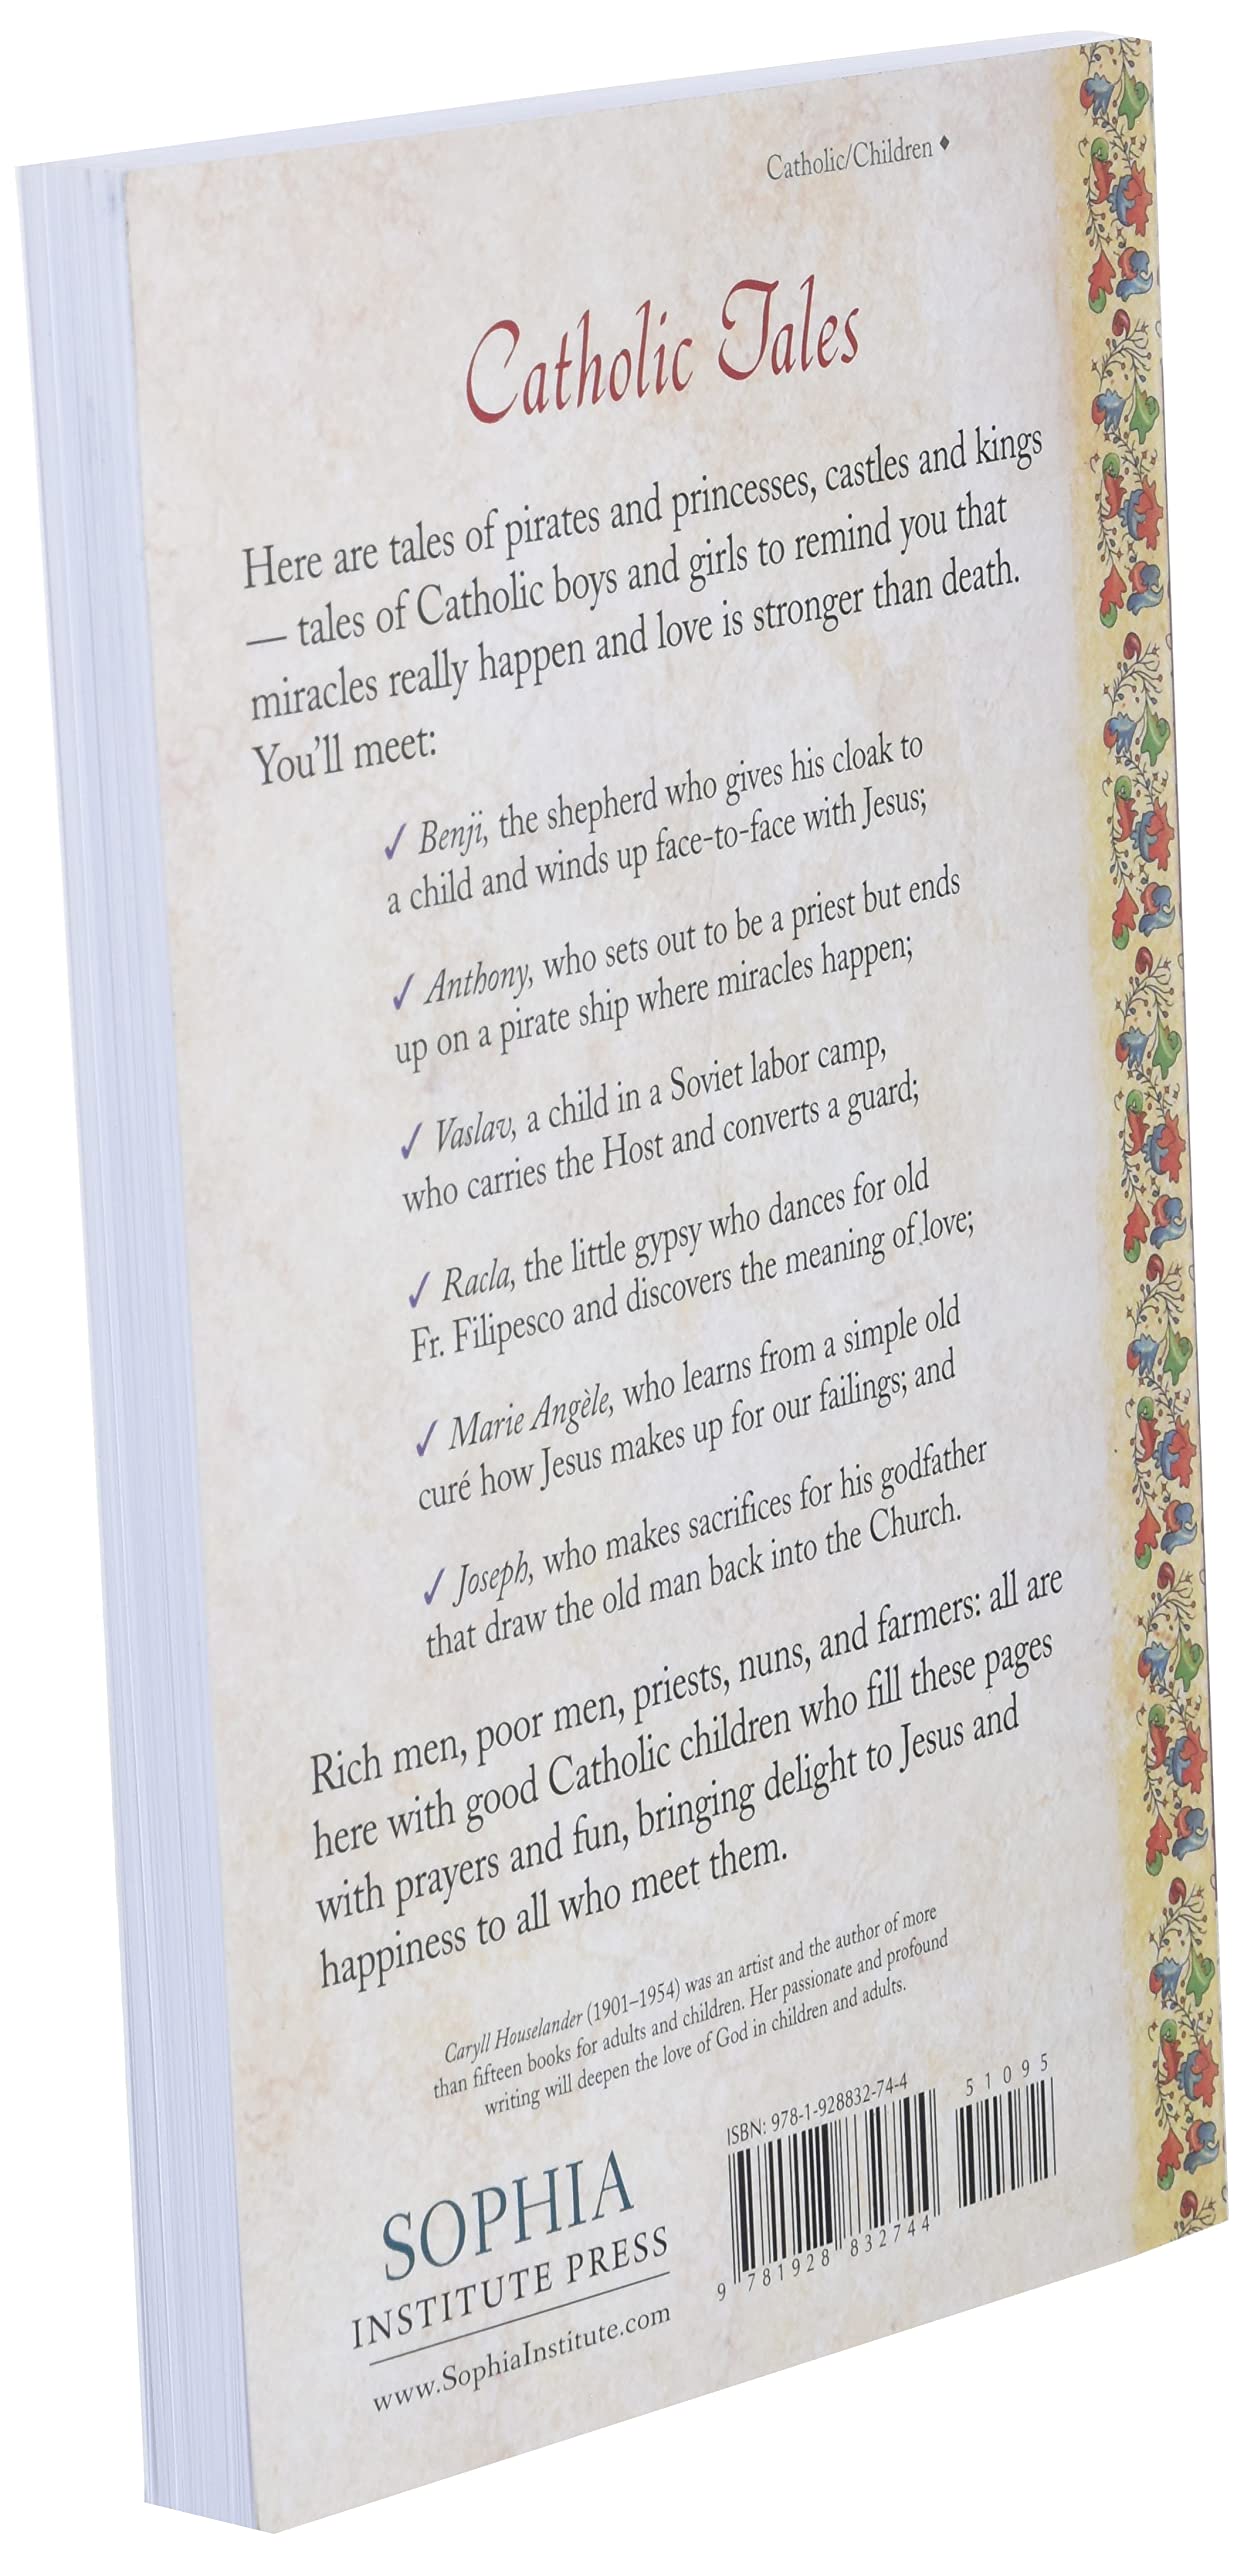 Catholic/Children ♦
Catholic Tales
Here are tales of pirates and princesses, castles and kings
— tales of Catholic boys and girls to remind you that
miracles really happen and love is stronger than death.
You'll meet:
✓ Benji, the shepherd who gives his cloak to
a child and winds up face-to-face with Jesus;
✓ Anthony, who sets out to be a priest but ends
up on a pirate ship where miracles happen;
✓ Vaslav, a child in a Soviet labor camp,
who carries the Host and converts a guard;
✓ Racla, the little gypsy who dances for old
Fr. Filipesco and discovers the meaning of love;
✓ Marie Angèle, who learns from a simple old
curé how Jesus makes up for our failings; and
✓ Joseph, who makes sacrifices for his godfather
that draw the old man back into the Church.
Rich men, poor men, priests, nuns, and farmers: all are
here with good Catholic children who fill these pages
with prayers and fun, bringing delight to Jesus and
happiness to all who meet them.
Caryll Houselander (1901–1954) was an artist and the author of more
than fifteen books for adults and children. Her passionate and profound
writing will deepen the love of God in children and adults.
SOPHIA
INSTITUTE PRESS
www.SophiaInstitute.com
ISBN: 978-1-928832-74-4
51095
9 781928 832744